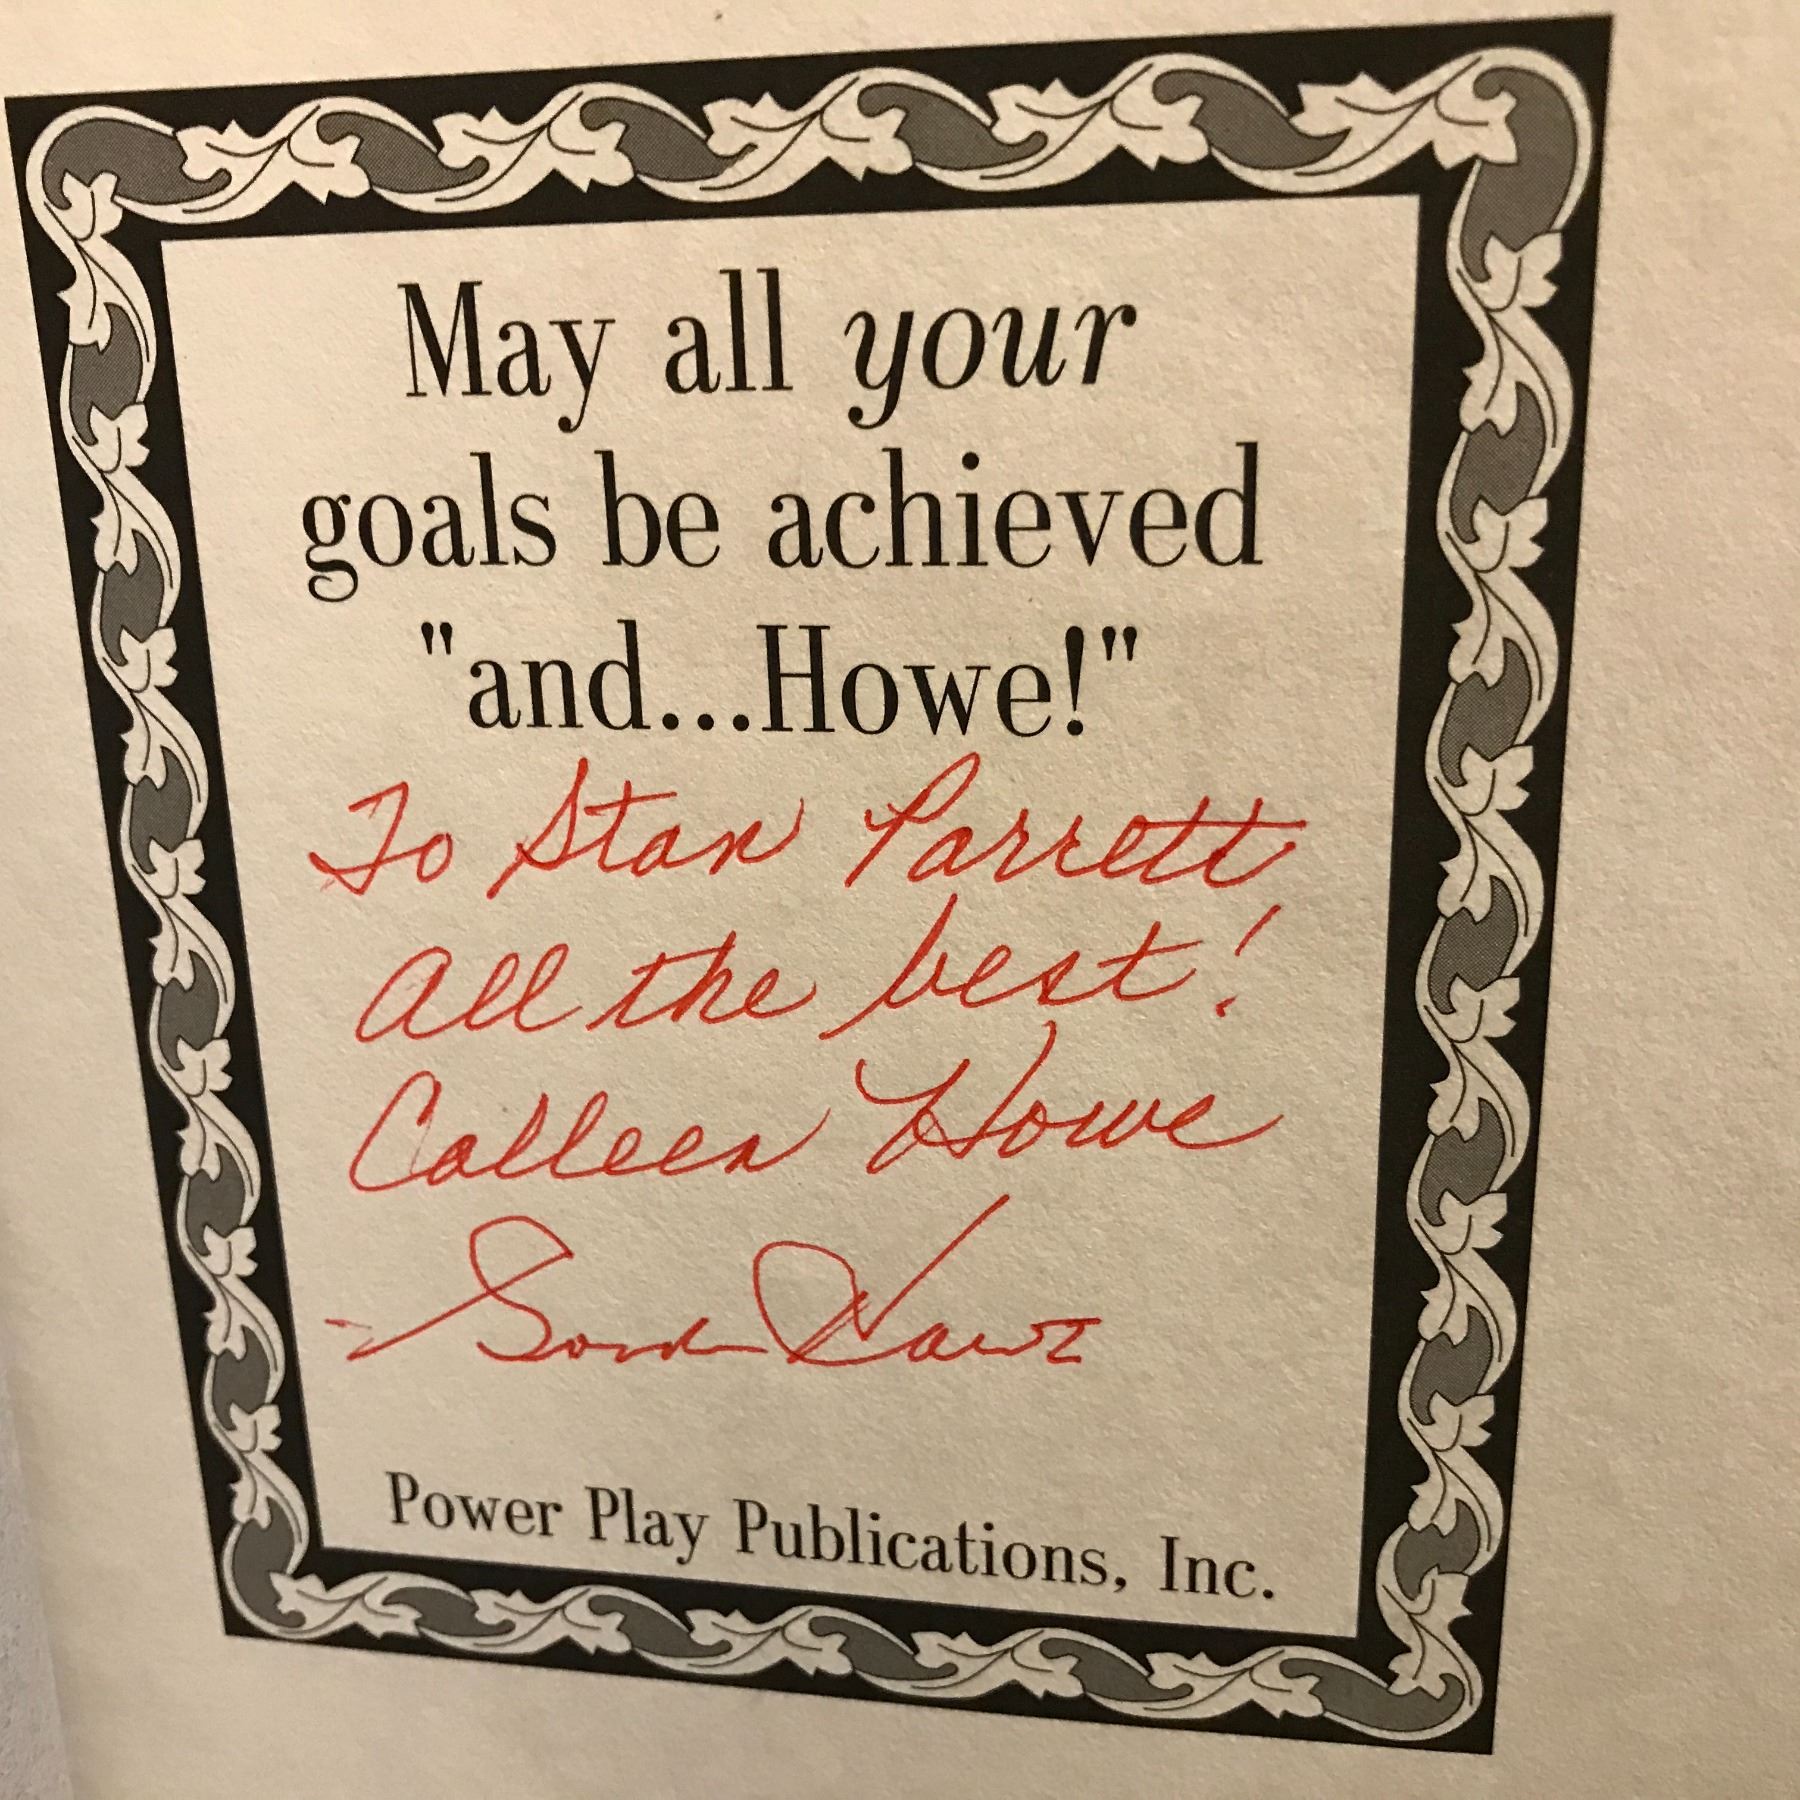 May all your
goals be achieved
"and...Howe!"
To Stan Parrett
All the best!
Colleen Howe
Gordie Howe
Power Play Publications, Inc.